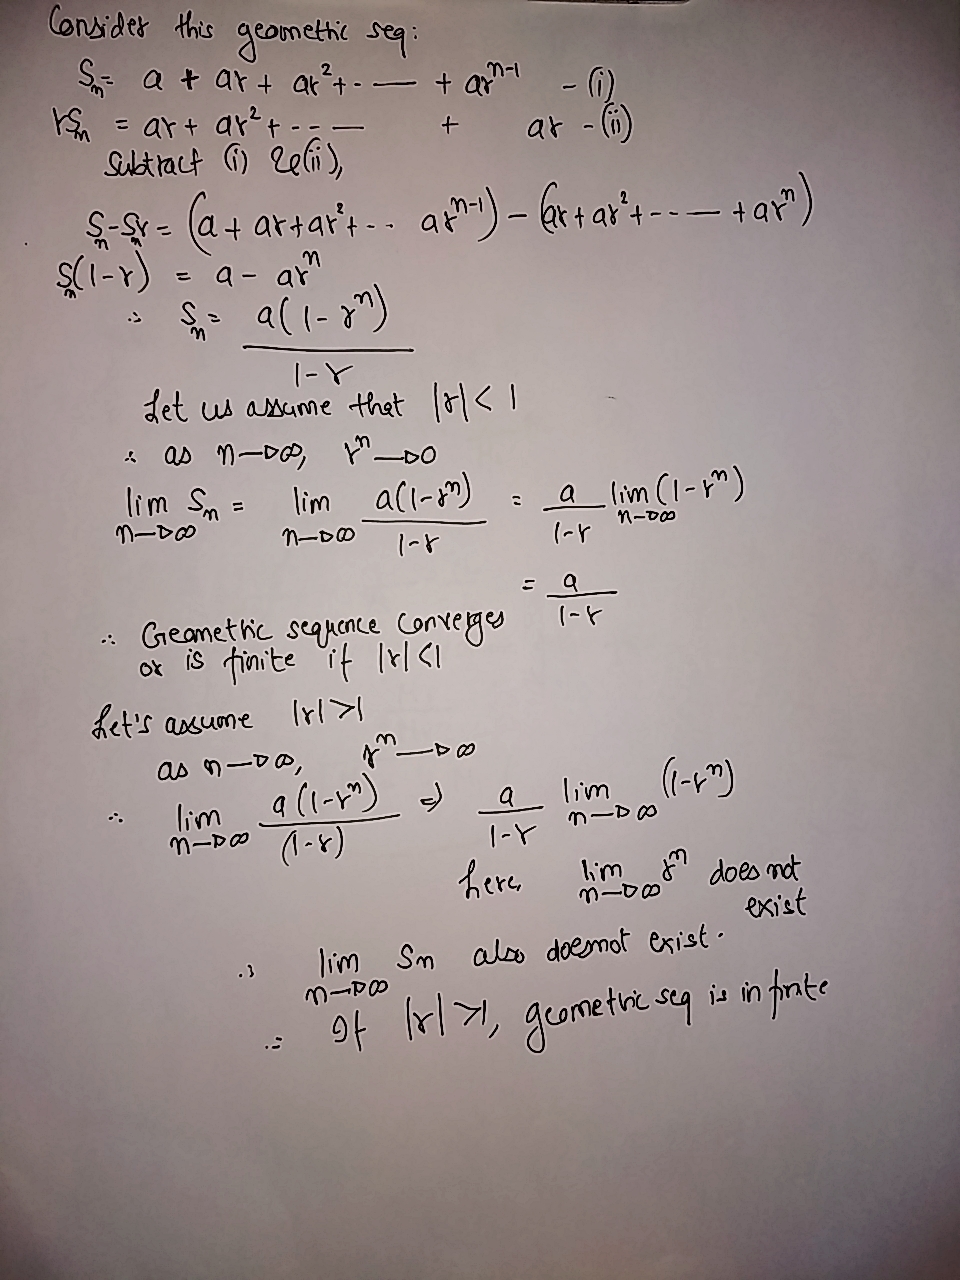 Consider this geometric seq:
Sₙ = a + ar + ar² + - — + arⁿ⁻¹ - (i)
rSₙ = ar + ar² + - - — + ar - (ii)
Subtract (i) & (ii),
Sₙ - Sₙr = (a + ar + ar² + - - arⁿ⁻¹) - (ar + ar² + - - — + arⁿ)
Sₙ(1-r) = a - arⁿ
∴ Sₙ = a(1-rⁿ) / 1-r
Let us assume that |r| < 1
∴ as n→∞, rⁿ→0
lim n→∞ Sₙ = lim n→∞ a(1-rⁿ) / 1-r = a / 1-r lim n→∞ (1-rⁿ)
= a / 1-r
∴ Geometric sequence converges
or is finite if |r| < 1
Let's assume |r| > 1
as n→∞, rⁿ→∞
∴ lim n→∞ a(1-rⁿ) / (1-r) ⇒ a / 1-r lim n→∞ (1-rⁿ)
here, lim n→∞ rⁿ does not
exist
∴ lim n→∞ Sn also doesnot exist.
∴ If |r| > 1, geometric seq is infinite